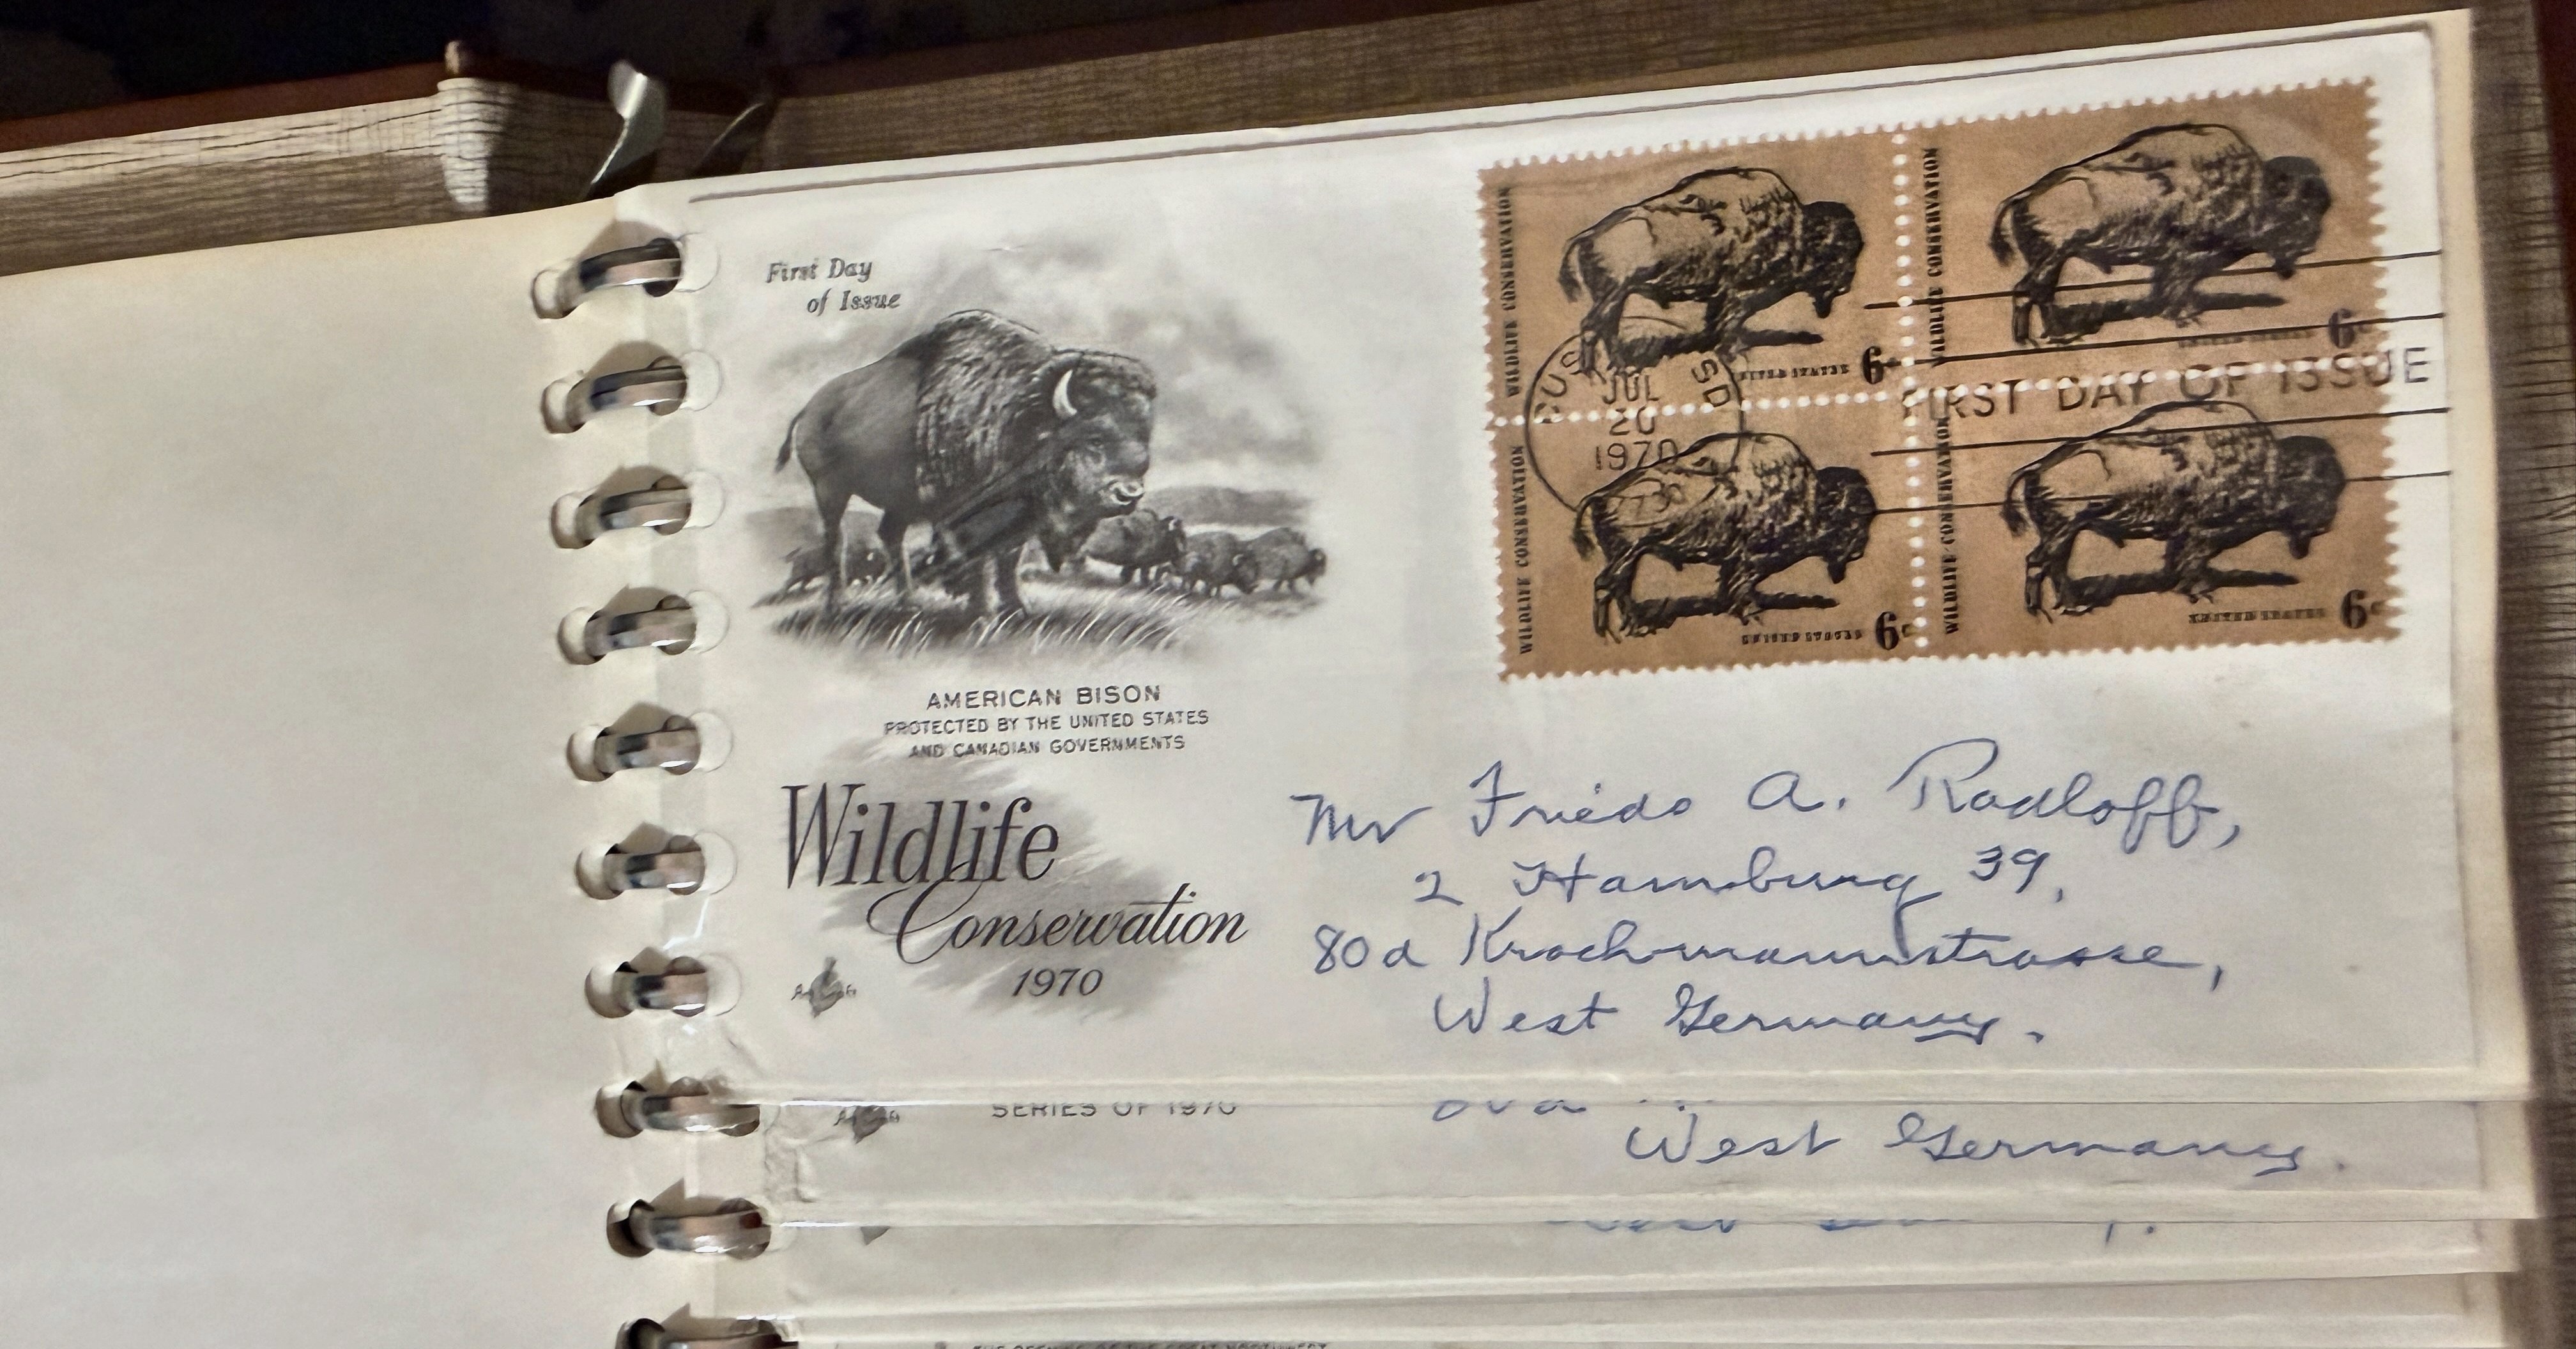 First Day
of Issue
AMERICAN BISON
PROTECTED BY THE UNITED STATES
AND CANADIAN GOVERNMENTS
Wildlife
Conservation
1970
WILDLIFE CONSERVATION
UNITED STATES 6c
WILDLIFE CONSERVATION
UNITED STATES 6c
WILDLIFE CONSERVATION
UNITED STATES 6c
WILDLIFE CONSERVATION
UNITED STATES 6c
SD
JUL
20
1970
FIRST DAY OF ISSUE
Mr Friedo A. Radloff,
2 Hamburg 39,
80a Krochmannstrasse,
West Germany.
SERIES OF 1970
West Germany.